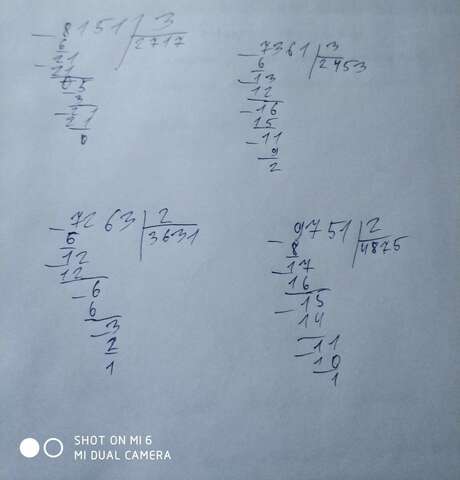 - 8151 | 3
6 2717
- 21
21
05
3
21
0
- 7361 | 3
6 2453
- 13
12
- 16
15
- 11
9
2
- 7263 | 2
6 3631
- 12
12
- 6
6
- 3
2
1
- 9751 | 2
8 4875
- 17
16
- 15
14
- 11
10
1
SHOT ON MI 6
MI DUAL CAMERA